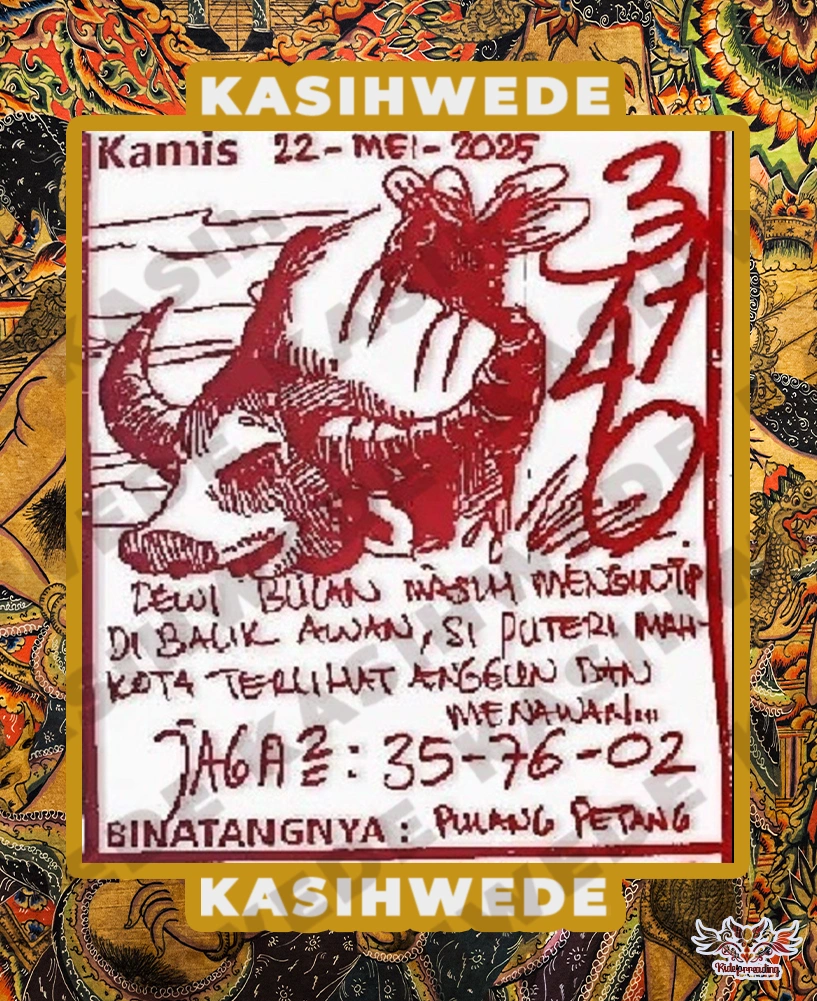 KASIHWEDE
Kamis 22-MEI-2025
3
4 7
6
DEWI BULAN MASIH MENGINTIP
DI BALIK AWAN, SI PUTERI MAH-
KOTA TERLIHAT ANGGUN DAN
MENAWAN...
JAGA2: 35-76-02
BINATANGNYA: PULANG PETANG
KASIHWEDE